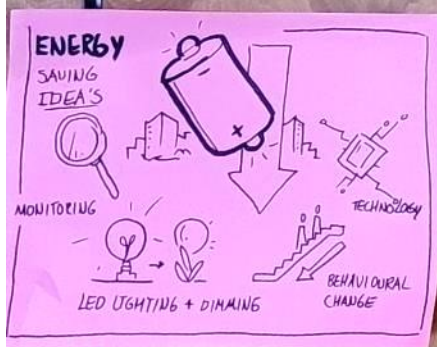 ENERGY
SAVING
IDEA'S
MONITORING
TECHNOLOGY
LED LIGHTING + DIMMING
BEHAVIOURAL
CHANGE